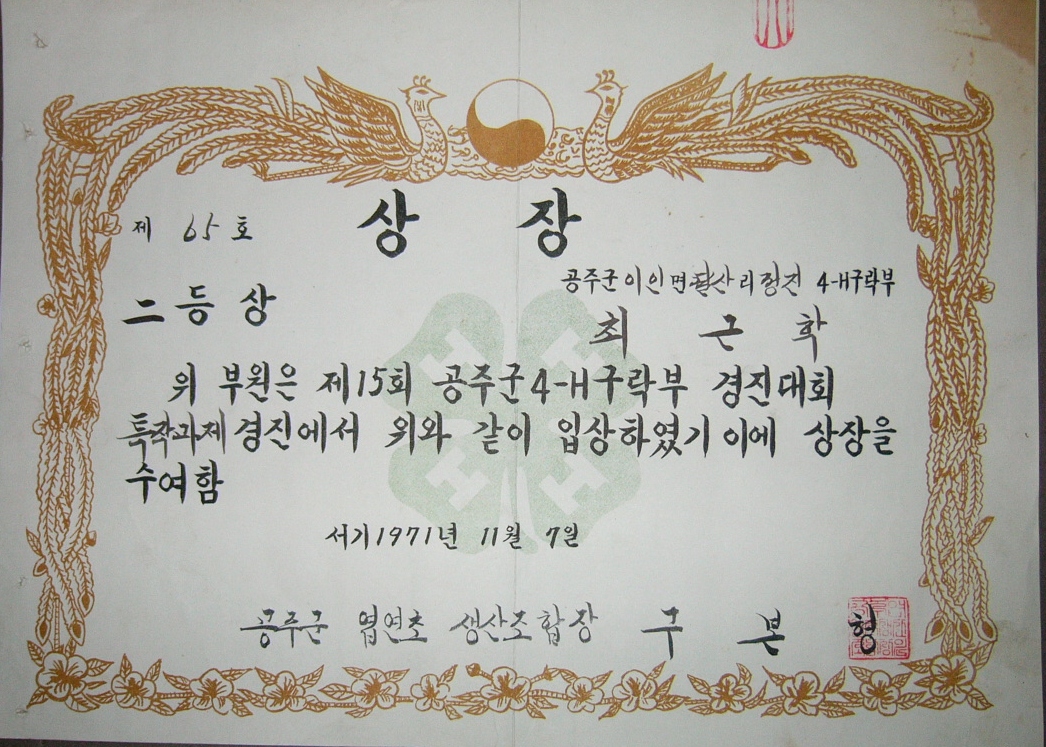 상 장
제 65 호
공주군 이인면 달산리 정진 4-H구락부
二등상
최 근 학
위 부원은 제15회 공주군 4-H구락부 경진대회
특작과제 경진에서 위와 같이 입상하였기 이에 상장을
수여함
H H
H H
서기 1971년 11월 7일
공주군 엽연초 생산조합장 구 본 형